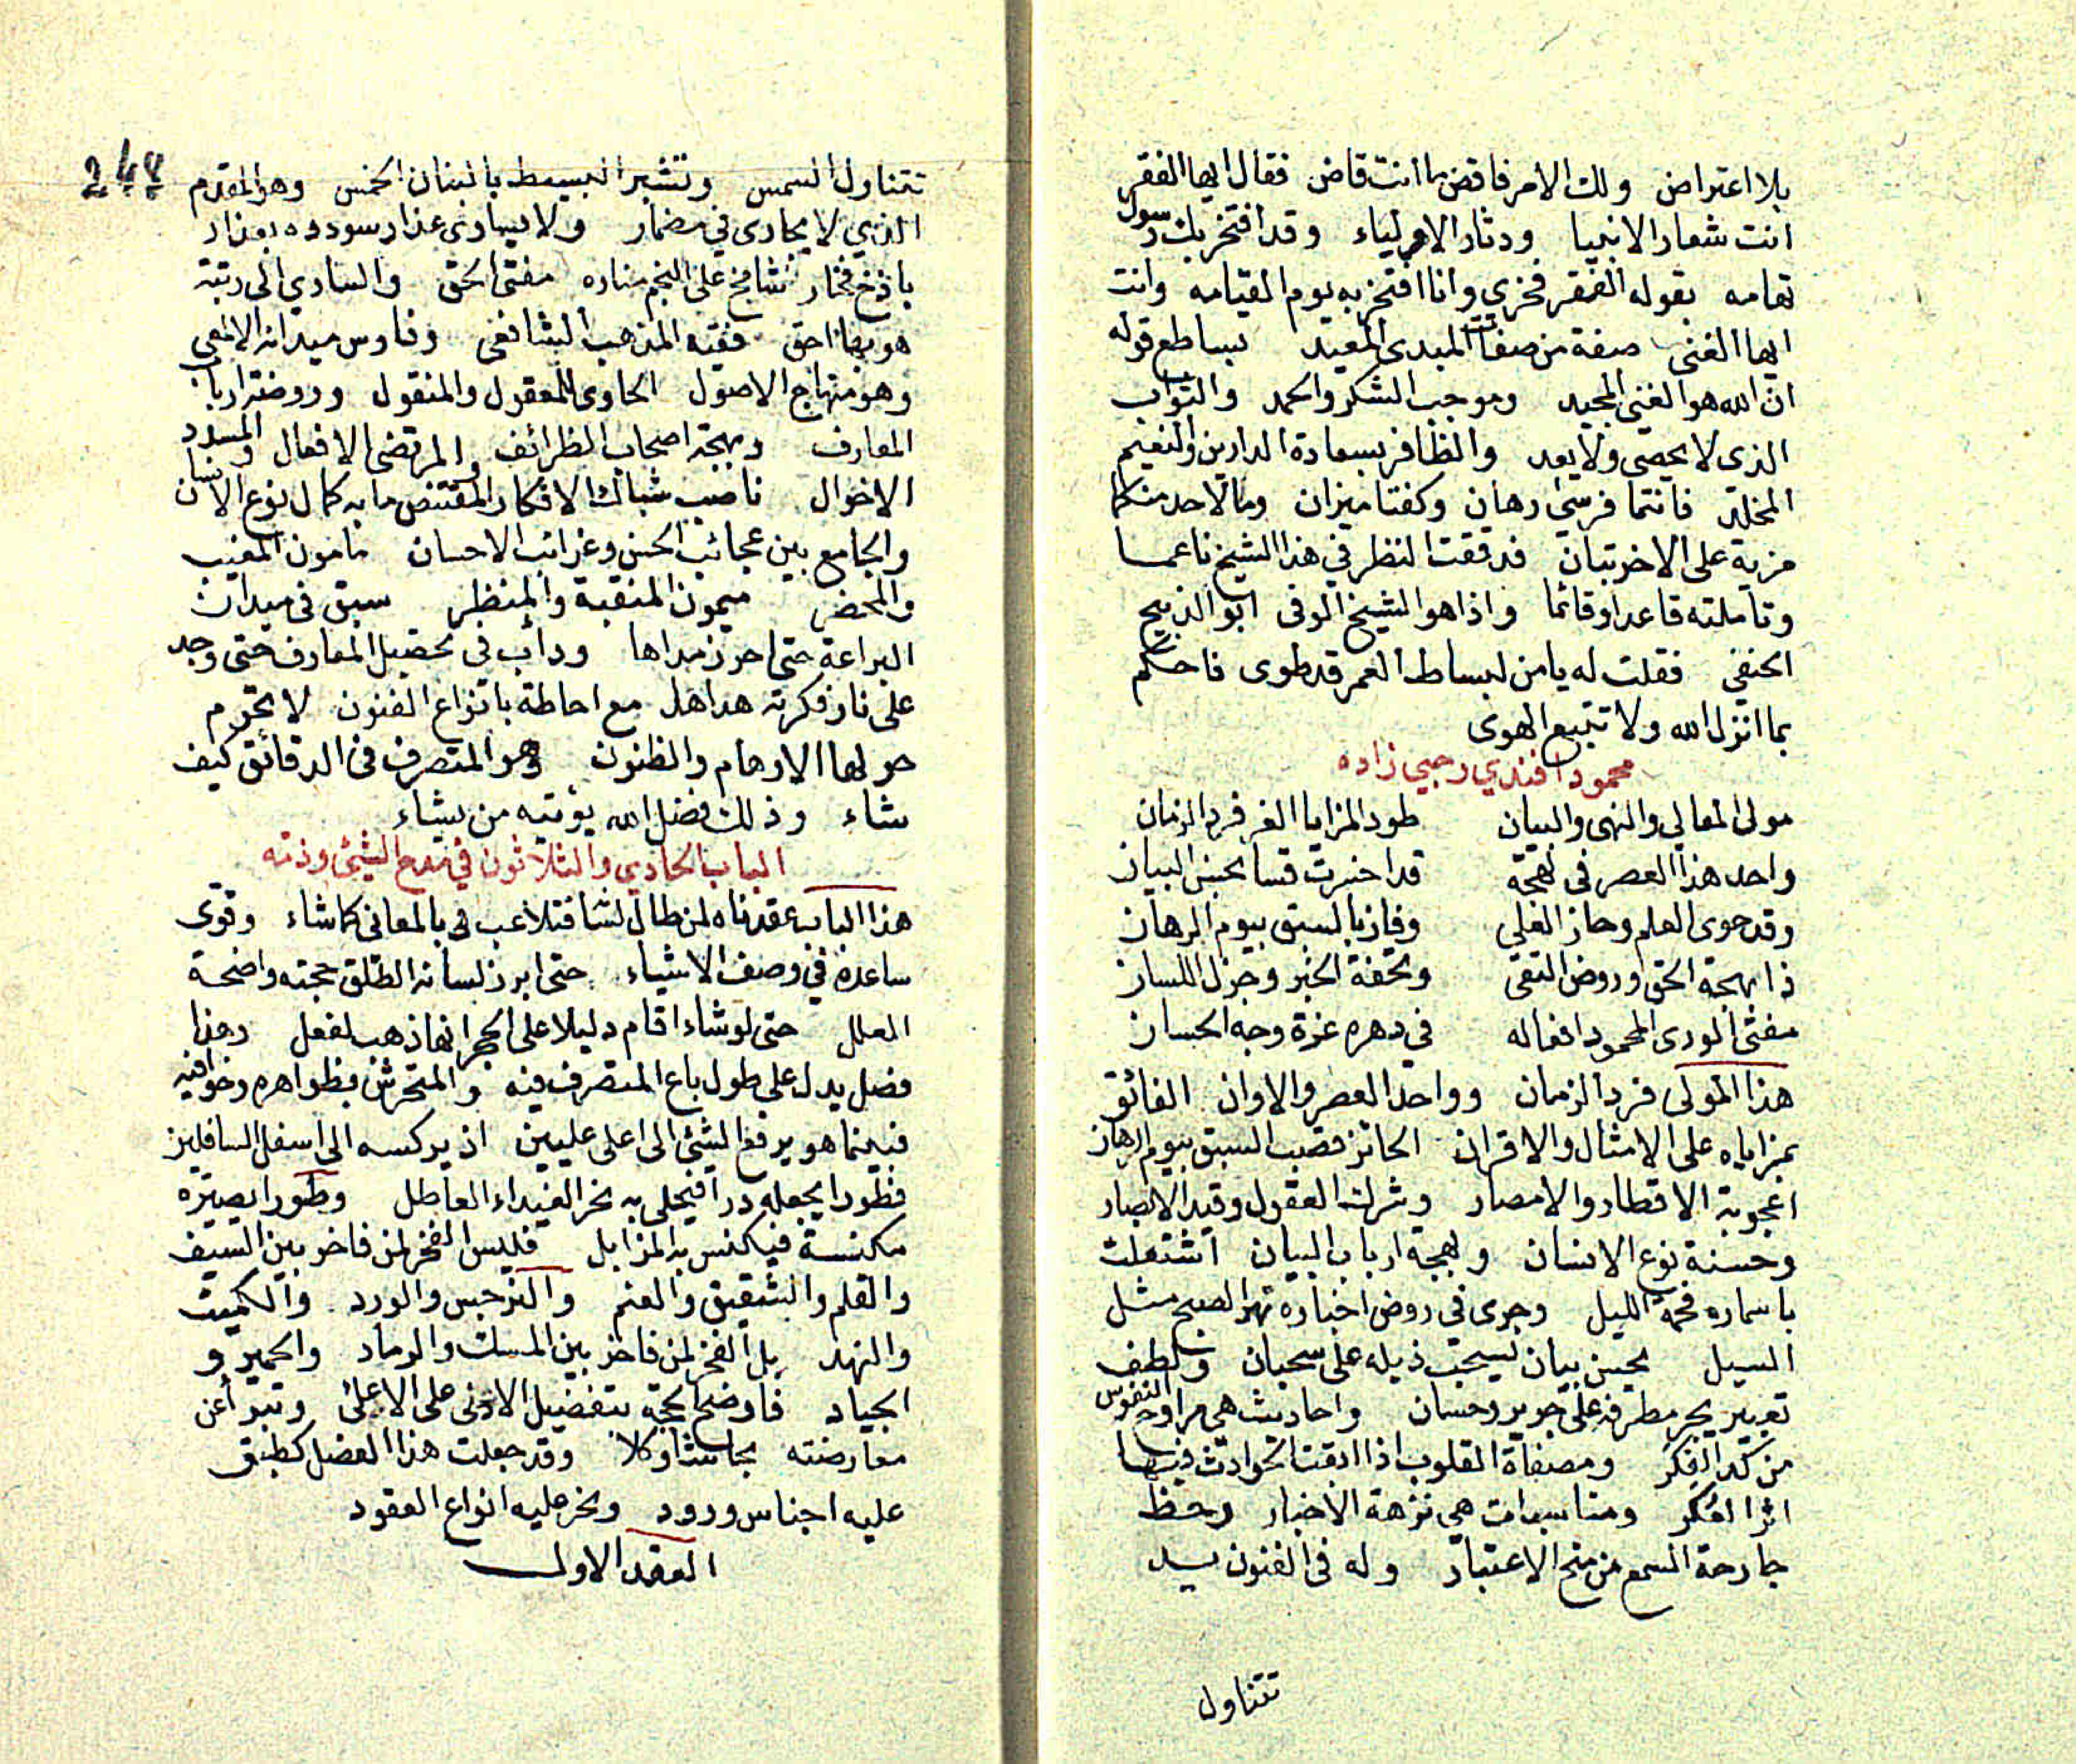 بلا اعتراض ولك الامر فاقض ما انت قاض فقال ايها الفقر
انت شعار الانبيا ودثار الاولياء وقد افتخر بك رسول
تهامه بقوله الفقر فخري وانا افتخر به يوم القيامه وانت
ايها الغنى صفة من صفات المبدى المعيد بساطع قوله
ان الله هو الغني المجيد وموجب الشكر والحمد والثواب
الذى لا يحصى ولا يعد والظافر بسعادة الدارين والنعيم
المخلد فانتما فرسي رهان وكفتا ميزان وما لاحد منكما
مزية على الاخر تبان فدققت النظر في هذا الشيخ ناعما
وتاملته قاعدا وقائما واذا هو الشيخ الوفى ابو الذبيح
الحنفي فقلت له يا من لبساط العمر قد طوى فاحكم
بما انزل الله ولا تتبع الهوى
محمود افندي رجبي زاده
مولى المعالي والنهى والبيان طود المزايا الغر فرد الزمان
واحد هذا العصر فى لهجة قد اخبرت قسا بحسن البيان
وقد حوى العلم وحاز العلى وفاز بالسبق بيوم الرهان
ذا بهجة الحق وروض التقى وتحفة الخبر وجزل اللسان
مفتى الورى المحمود افعاله في دهره غرة وجه الحسان
هذا المولى فرد الزمان وواحد العصر والاوان الفائق
بمزاياه على الامثال والاقران الحائز قصب السبق بيوم الرهان
اعجوبة الاقطار والامصار وشرك العقول وقيد الابصار
وحسنة نوع الانسان ولهجة ارباب البيان اشتعلت
باسماره فحمة الليل وجرى فى روض اخباره نهر الصبح مثل
السيل بحسن بيان يسحب ذيله على سحبان ولطف
تعبير يجر مطرفه على جرير وحسان واحاديث هي مراوح النفوس
من كد الفكر ومصفاة القلوب اذا ابقت الحوادث فيها
اثرا لعكر ومناسبات هي نزهة الاخبار وحظ
جارحة السمع من منح الاعتبار وله فى الفنون يد
تتناول
247
تتناول الشمس وتشير البسيط بالبنان الخمس وهو المقدم
الذي لا يجارى في مضمار ولا يساوى عذار سودده بعذار
باذخ فخار شامخ على النجم مناره مفتى الحق والسارى الى رتبة
هو بها احق فقيه المذهب الشافعي وفارس ميدانه الالمعي
وهو منهاج الاصول الحاوى للمعقول والمنقول وروضة ارباب
المعارف وبهجة اصحاب الظرائف والمرتضى الافعال والمسدد
الاقوال ناصب شباك الافكار المقتنص ما به كمال نوع الانسان
والجامع بين عجائب الحسن وغرائب الاحسان مامون المغيب
والمحضر ميمون المنقبة والمنظر سبق فى ميدان
البراعة حتى احرز مداها وداب فى تحصيل المعارف حتى وجد
على نار فكرته هداها مع احاطة بانواع الفنون لا تحوم
حولها الاوهام والظنون وهو المتصرف فى الدقائق كيف
شاء وذلك فضل الله يؤتيه من يشاء
الباب الحادي والثلاثون في مدح الشئ وذمه
هذا الباب عقدناه لمن طال لشا فتلاعب فى بالمعانى كما شاء وقوى
ساعده في وصف الاشياء حتى ابرز لسانه الطلق حجته واضحة
العلل حتى لو شاء اقام دليلا على الحجر انها ذهب لفعل وهذا
فضل يدل على طول باع المتصرف فيه والمتحرش بظواهره وخوافيه
فبينما هو يرفع الشئ الى اعلى عليين اذ يركسه الى اسفل السافلين
فطورا يجعله درا فيحلى به نحر الغيداء العاطل وطورا يصيره
مكنسة فيكنس به المزابل فليس الفخر لمن فاخر بين السيف
والقلم والشقيق والعنم والنرجس والورد والكميت
والنهد بل الفخر لمن فاخر بين المسك والرماد والحمير و
الجياد فاوضح الحجة بتفضيل الادنى على الاعلى وتبرأ عن
معارضته بحاشا وكلا وقد جعلت هذا الفضل كطبق
عليه اجناس ورود ونحر عليه انواع العقود
العقد الاول